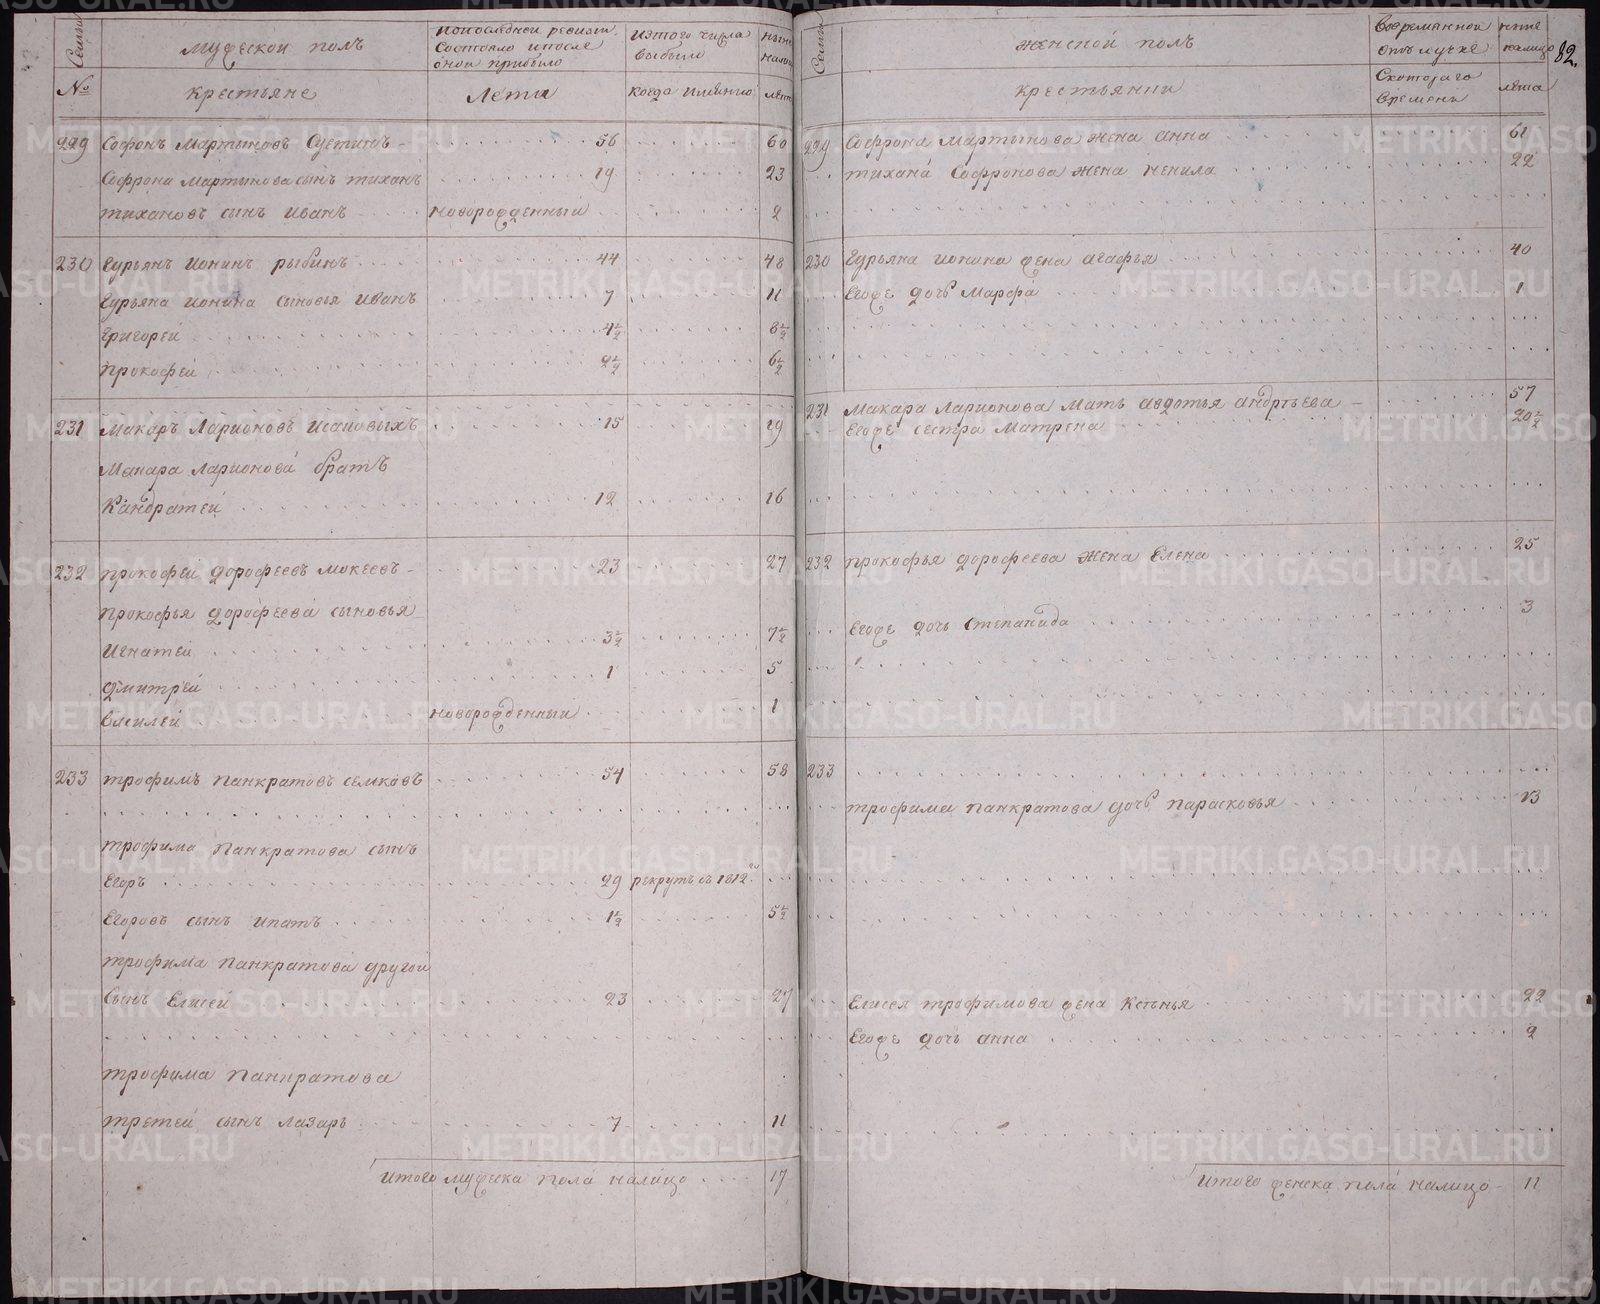 Семьи
Мужеской полъ
Попоследней ревизіи
Состояло ипосле
оной прибыло
Изтого числа
выбыло
ныне
налицо
№
крестьяне
Лета
когда именно
лета
229 Софонъ Мартыновъ Суетинъ 56 60
Софрона Мартынова сынъ тиханъ 19 23
тихановъ сынъ Иванъ новорожденный 2
230 Гурьянъ Ионинъ рыбинъ 44 48
Гурьяна Ионина сыновья Иванъ 7 11
Григорей 4½ 8½
прокофей 2½ 6½
231 Макаръ Ларионовъ Исаковыхъ 15 19
Макара Ларионова братъ
Кандратей 12 16
232 прокофей дорофеевъ мокеевъ 23 27
прокофья дорофеева сыновья
Игнатей 3½ 7½
дмитрей 1 5
василей новорожденный 1
233 трофимъ панкратовъ семковъ 54 58
трофима панкратова сынъ
Егоръ 29 рекрутъ съ 1812го
Егоровъ сынъ ипатъ 1½ 5½
трофима панкратова другой
сынъ Елисей 23 27
трофима панкратова
третей сынъ лазарь 7 11
Итого мужеска пола налицо 17
Семьи
женской полъ
Вовременной
отлучке
ныне
налицо
82.
крестьянки
Скотораго
времени
лета
229 Софрона Мартынова жена анна 61
тихана Софронова жена ненила 22
230 Гурьяна ионина жена агафья 40
Егоже дочь Марфа 1
231 Макара Ларионова Мать авдотья андреева 57
Егоже сестра Матрена 20½
232 прокофья дорофеева жена Елена 25
Егоже дочь степанида 3
233
трофима панкратова дочь парасковья 13
Елисея трофимова жена Ксенья 22
Егоже дочь анна 2
Итого женска пола налицо 11
METRIKI.GASO-URAL.RU